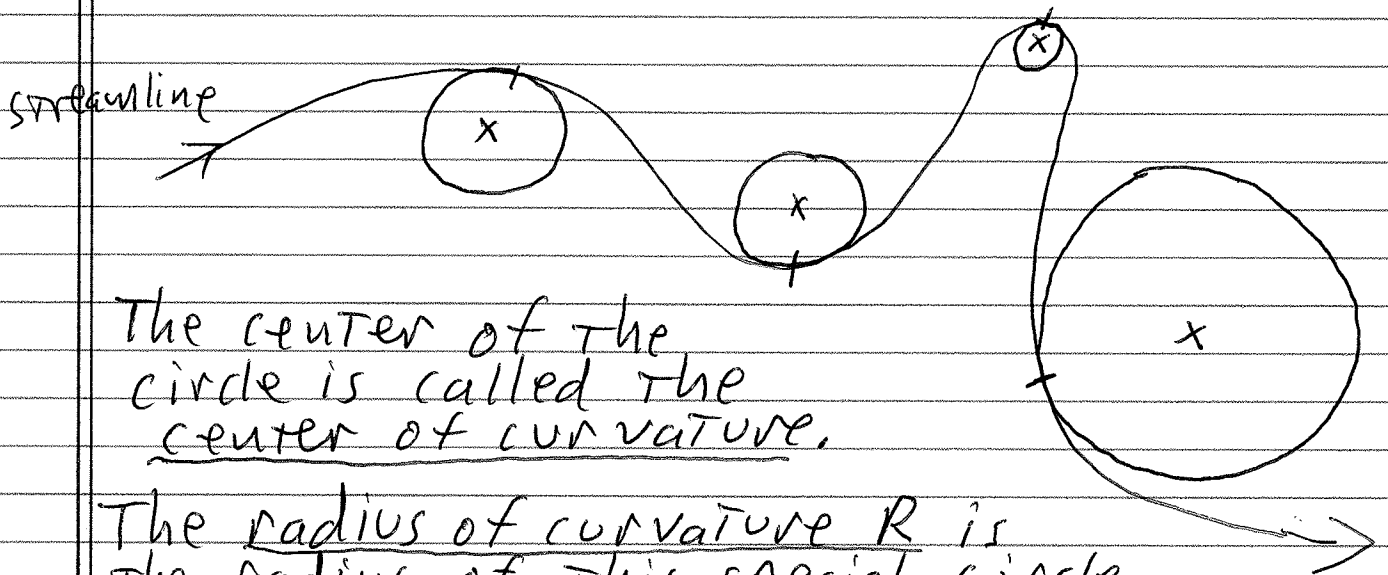 streamline
The center of the
circle is called the
center of curvature.
The radius of curvature R is
the radius of this special circle